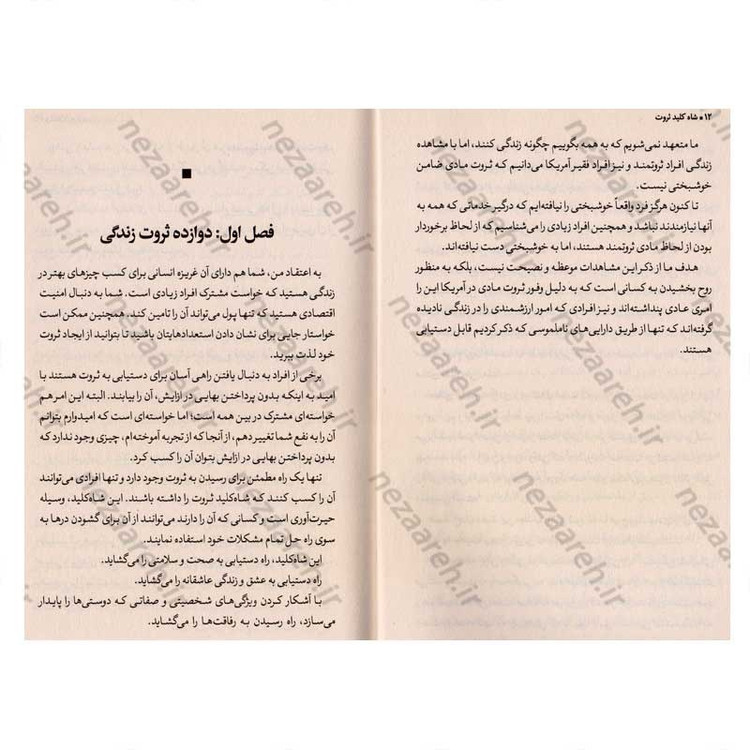 ۱۲ • شاه کلید ثروت
ما متعهد نمی‌شویم که به همه بگوییم چگونه زندگی کنند، اما با مشاهده
زندگی افراد ثروتمند و نیز افراد فقیر آمریکا می‌دانیم که ثروت مادی ضامن
خوشبختی نیست.
تا کنون هرگز فرد واقعاً خوشبختی را نیافته‌ایم که درگیر خدماتی که همه به
آنها نیازمندند نباشد و همچنین افراد زیادی را می‌شناسیم که از لحاظ برخوردار
بودن از لحاظ مادی ثروتمند هستند، اما به خوشبختی دست نیافته‌اند.
هدف ما از ذکر این مشاهدات موعظه و نصیحت نیست، بلکه به منظور
روح بخشیدن به کسانی است که به دلیل وفور ثروت مادی در آمریکا این را
امری عادی پنداشته‌اند و نیز افرادی که امور ارزشمندی را در زندگی نادیده
گرفته‌اند که تنها از طریق دارایی‌های ناملموسی که ذکر کردیم قابل دستیابی
هستند.
فصل اول: دوازده ثروت زندگی
به اعتقاد من، شما هم دارای آن غریزه انسانی برای کسب چیزهای بهتر در
زندگی هستید که خواست مشترک افراد زیادی است. شما به دنبال امنیت
اقتصادی هستید که تنها پول می‌تواند آن را تامین کند. همچنین ممکن است
خواستار جایی برای نشان دادن استعدادهایتان باشید تا بتوانید از ایجاد ثروت
خود لذت ببرید.
برخی از افراد به دنبال یافتن راهی آسان برای دستیابی به ثروت هستند با
امید به اینکه بدون پرداختن بهایی در ازایش، آن را بیابند. البته این امر هم
خواسته‌ای مشترک در بین همه است؛ اما خواسته‌ای است که امیدوارم بتوانم
آن را به نفع شما تغییر دهم، از آنجا که از تجربه آموخته‌ام، چیزی وجود ندارد که
بدون پرداختن بهایی در ازایش بتوان آن را کسب کرد.
تنها یک راه مطمئن برای رسیدن به ثروت وجود دارد و تنها افرادی می‌توانند
آن را کسب کنند که شاه‌کلید ثروت را داشته باشند. این شاه‌کلید، وسیله
حیرت‌آوری است و کسانی که آن را دارند می‌توانند از آن برای گشودن درها به
سوی راه حل تمام مشکلات خود استفاده نمایند.
این شاه‌کلید، راه دستیابی به صحت و سلامتی را می‌گشاید.
راه دستیابی به عشق و زندگی عاشقانه را می‌گشاید.
با آشکار کردن ویژگی‌های شخصیتی و صفاتی که دوستی‌ها را پایدار
می‌سازد، راه رسیدن به رفاقت‌ها را می‌گشاید.
nezaareh.ir
nezaareh.ir
nezaareh.ir
nezaareh.ir
nezaareh.ir
nezaareh.ir
nezaareh.ir
nezaareh.ir